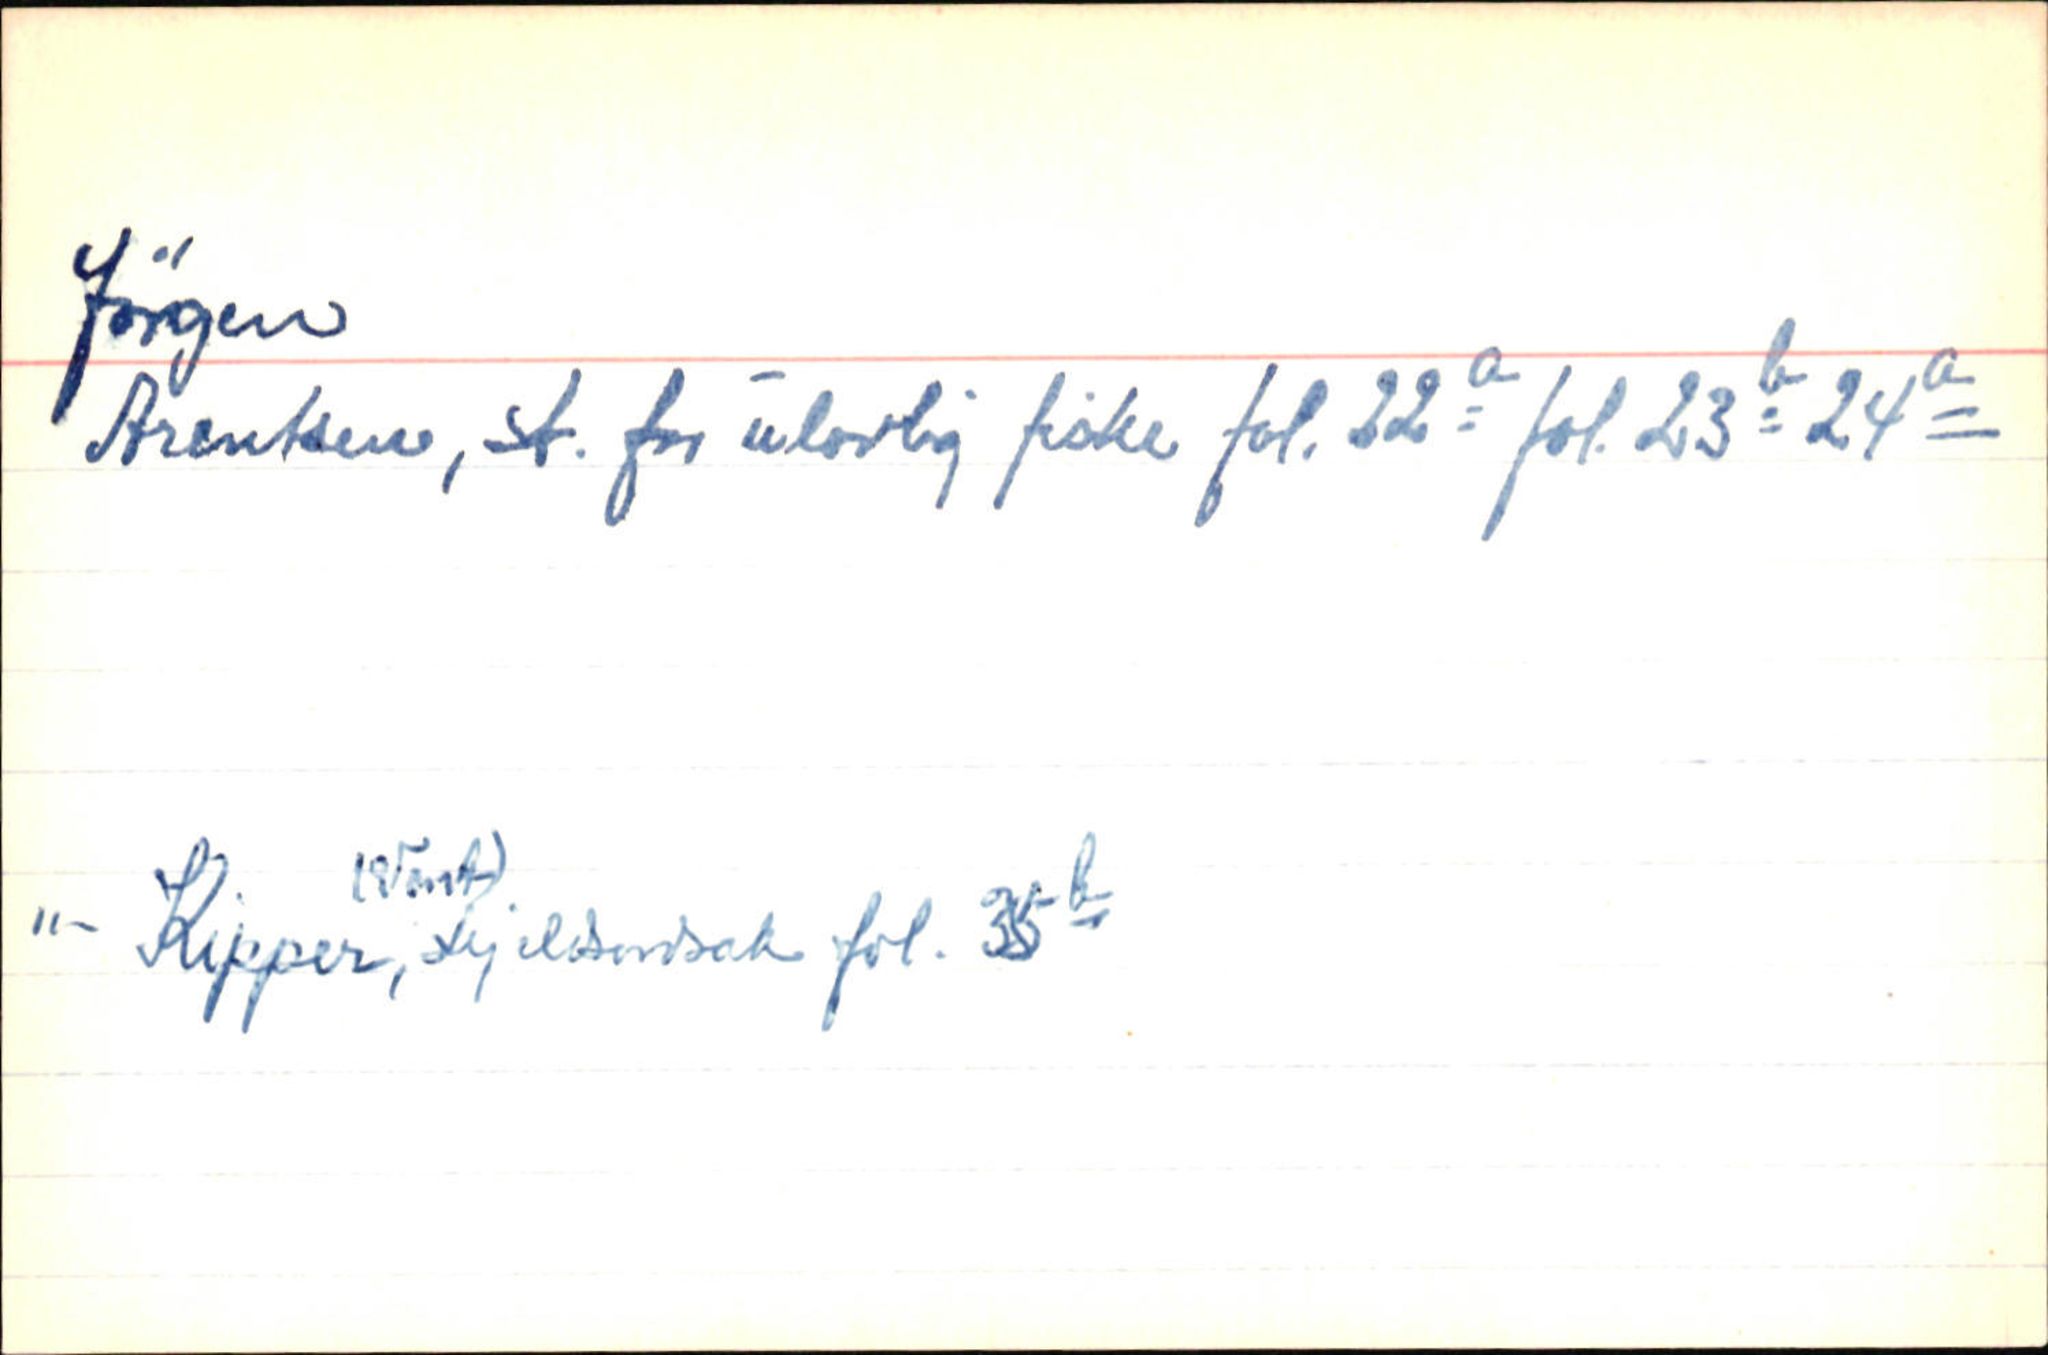 Jörgen
Arentsen, st. for ulovlig fiske fol. 22ª fol. 23ᵇ 24ª
"- Kipper, skjeldsordsak fol. 35ᵇ